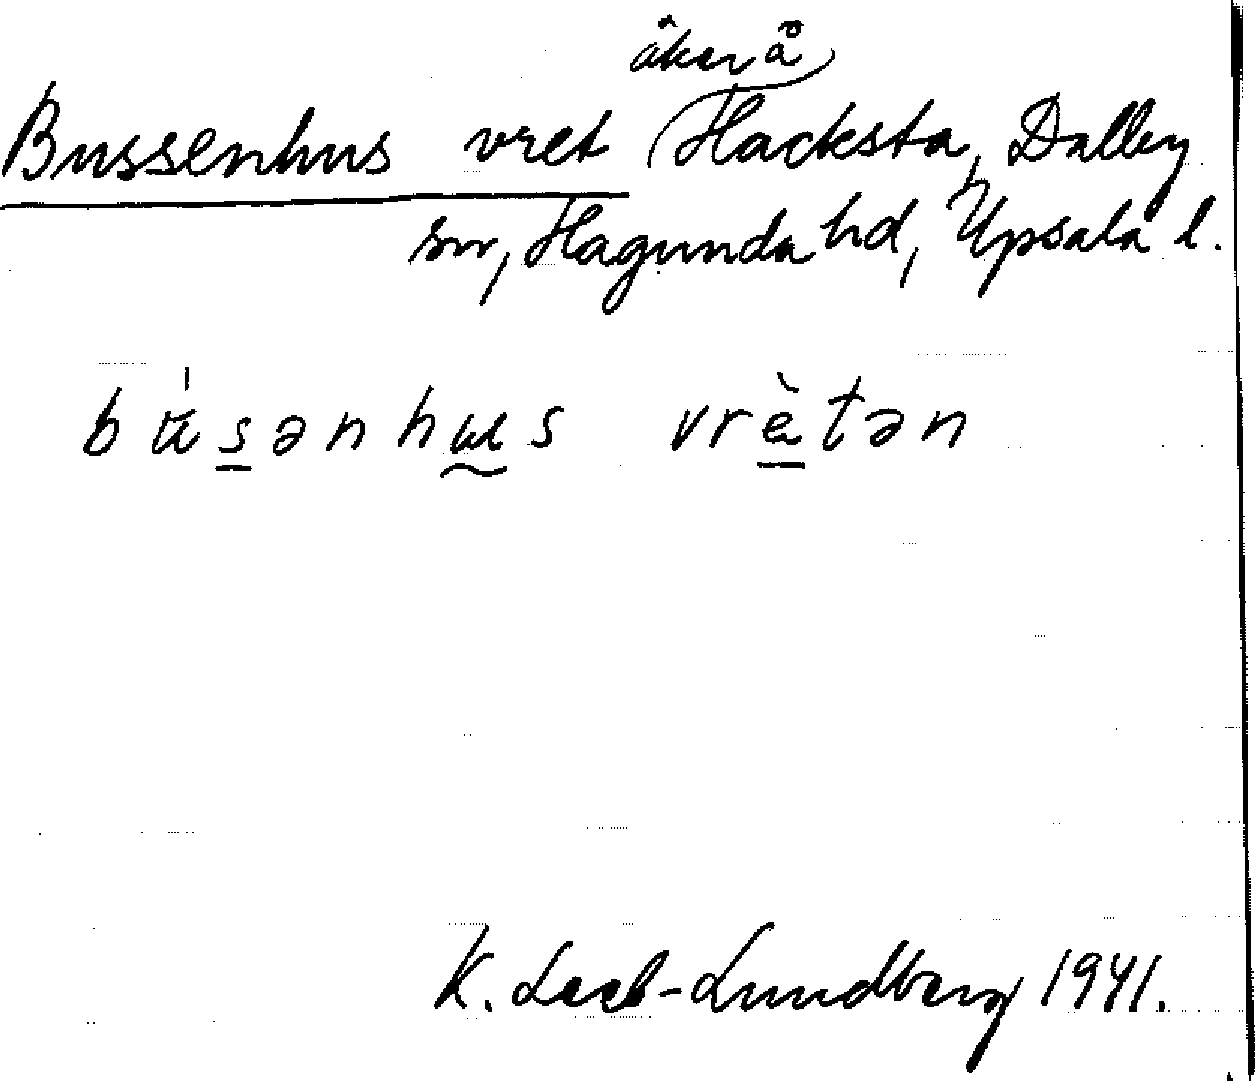 åker å
Bussenhus vret Hacksta, Dalby
sn, Hagunda hd, Upsala l.
bu̇sənhus vrètən
K. Leeb-Lundberg 1941.